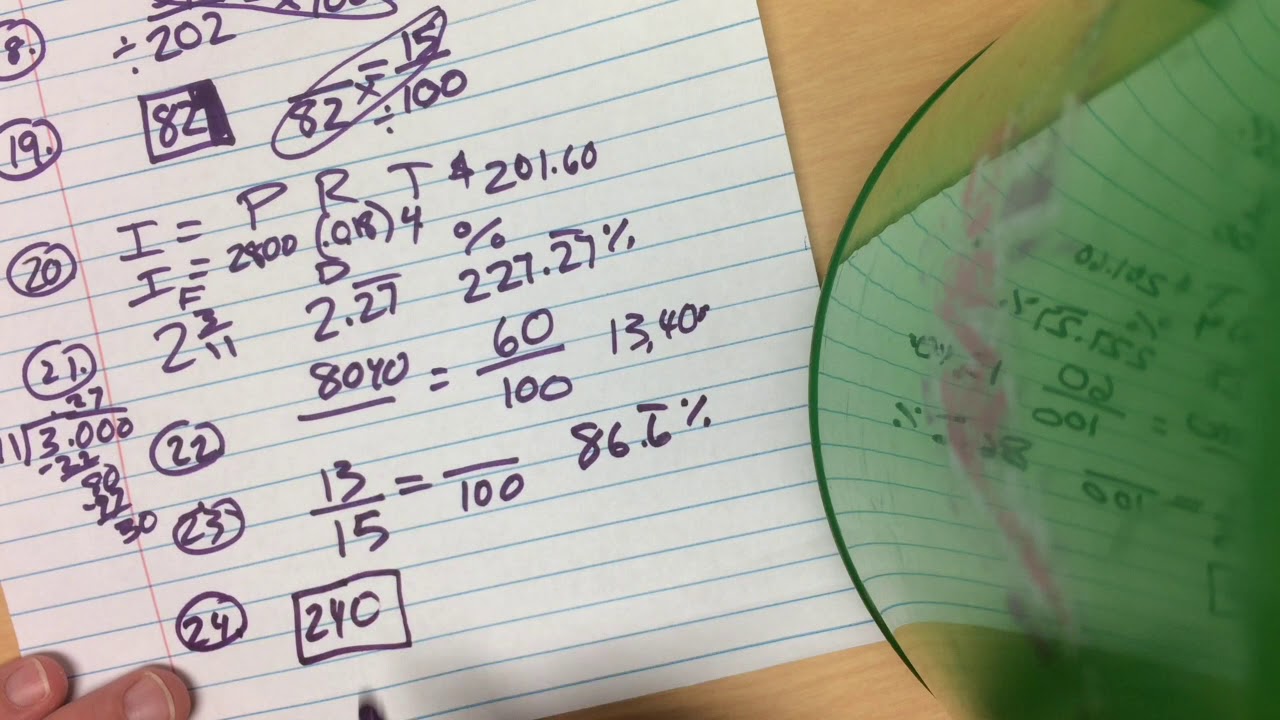 8.
÷202
82 = 15
÷100
19. 82
I = P R T $201.60
20 I = 2800 (.018) 4
F D %
2 3/11 2.27 227.27%
21.
.27
11 3.000
-22
80
30
22 8040 = 60/100 13,400
23 13/15 = /100 86.6%
24. 240